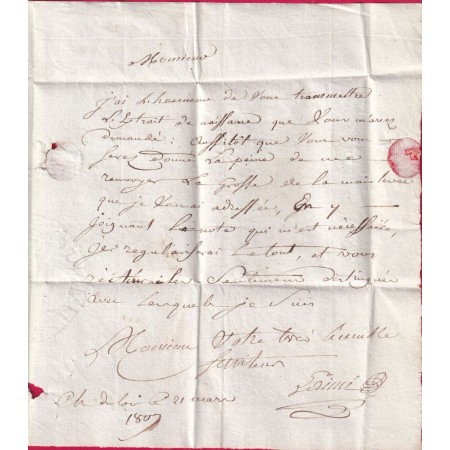 Monsieur
j'ai L'honneur de Vous transmettre
L'Extrait de naissance que Vous m'avez
demandé : Aussitôt que Vous vous
serez donné La peine de me
renvoyer La grosse de la mainlevée
que je Vous ai adressée, En y
joignant La note qui m'est nécessaire,
je régulariserai Le tout, et vous
réitérer les Sentimens distingués
avec lesquels je Suis
Monsieur Votre très humble
Serviteur
Ch. du Loir Le 21 mars
180